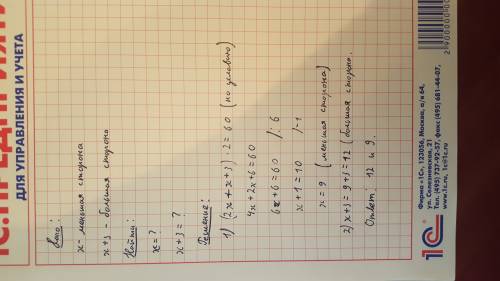 1С:ПРЕДПРИЯТИ
ДЛЯ УПРАВЛЕНИЯ И УЧЕТА
Дано:
x - меньшая сторона
x+3 - большая сторона
Найти:
x = ?
x+3 = ?
Решение:
1) (2x+x+3)·2=60 (по условию)
4x+2x+6=60
6x+6=60 /:6
x+1=10 /-1
x=9 (меньшая сторона)
2) x+3=9+3=12 (большая сторона.
Ответ: 12 и 9.
1С
Фирма «1С», 123056, Москва, а/я 64,
ул. Селезневская, 21
Тел. (495) 737-92-57, факс (495) 681-44-07,
www.1c.ru, 1c@1c.ru